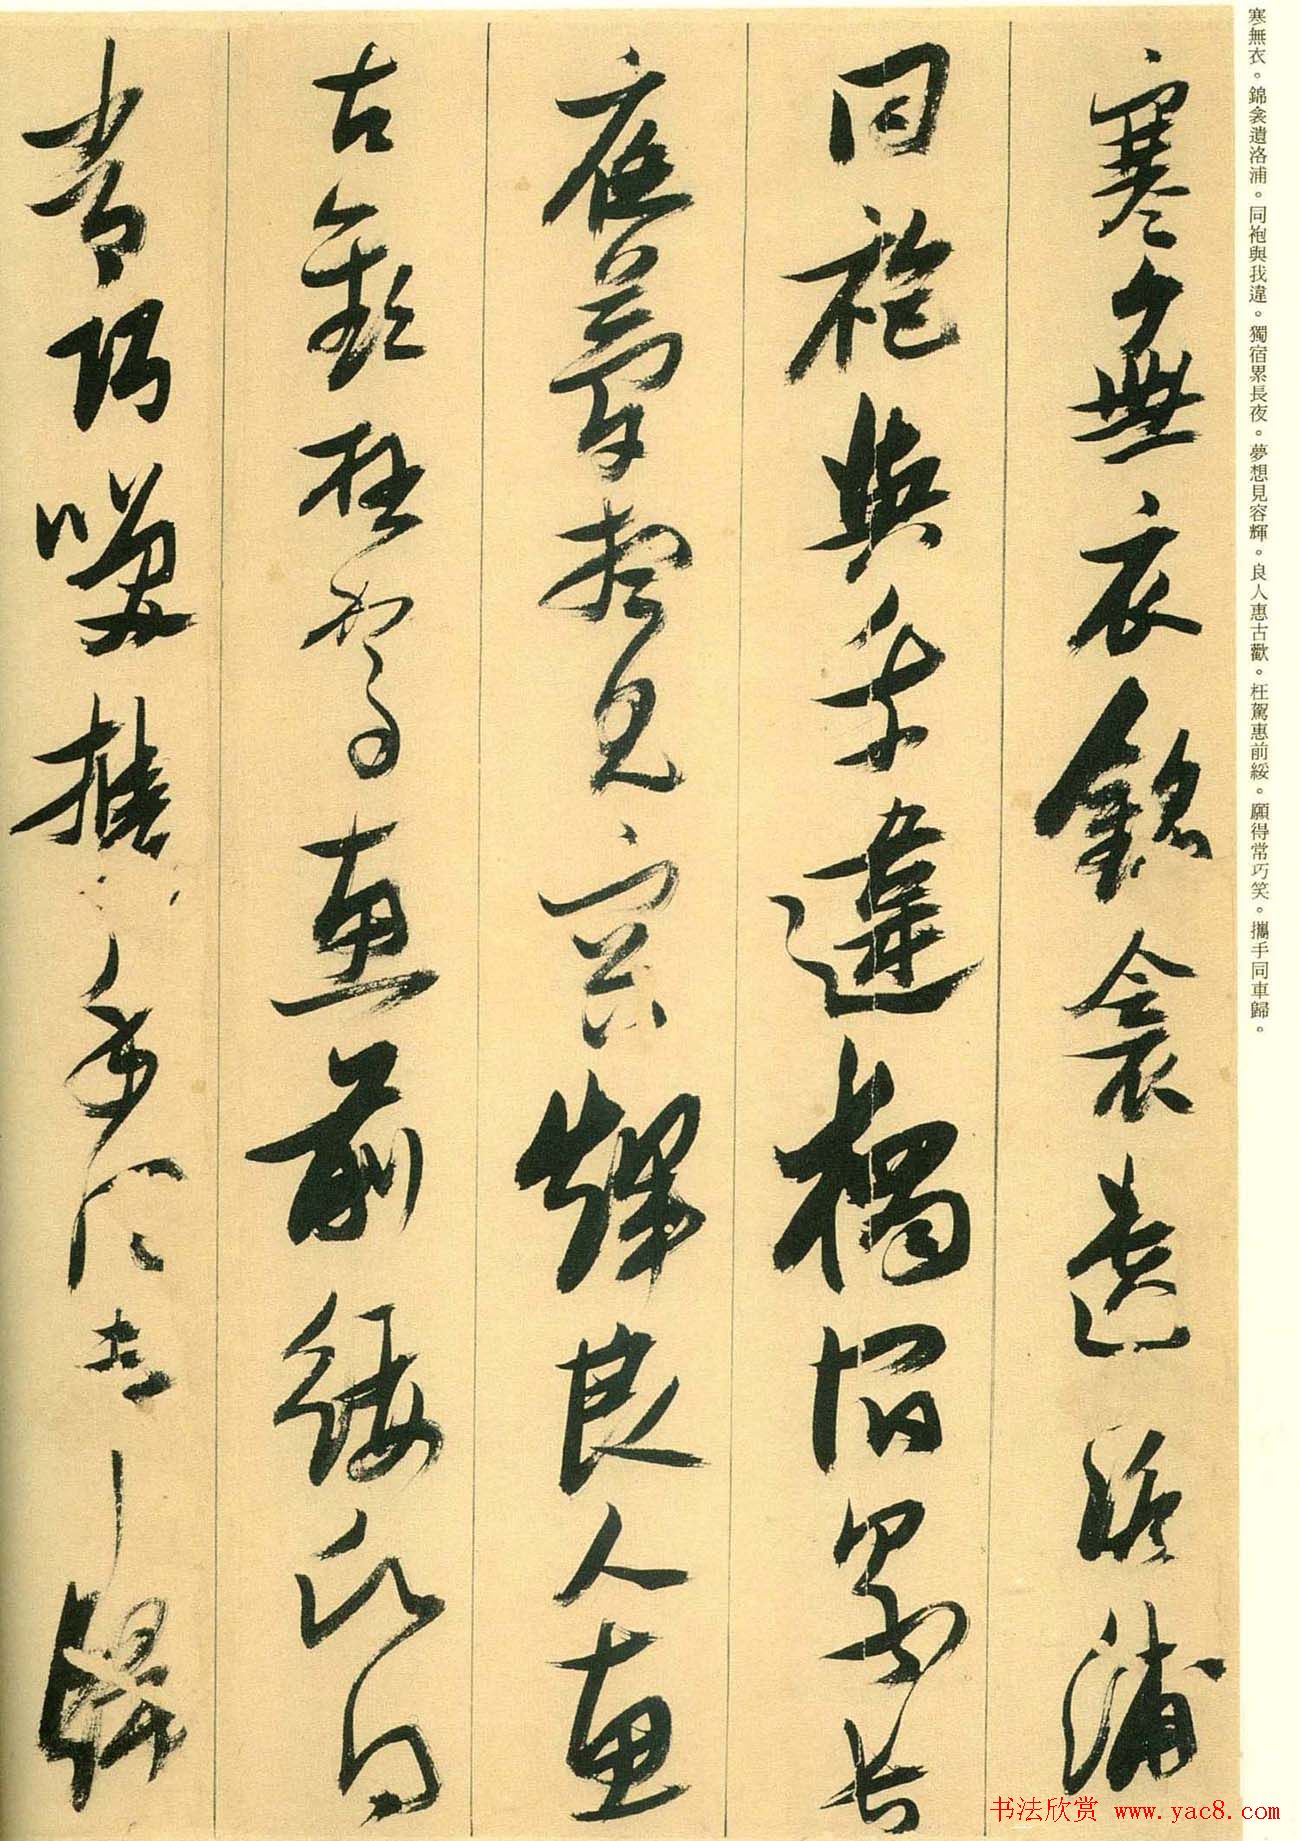 寒無衣。錦衾遺洛浦。同袍與我違。獨宿累長夜。夢想見容輝。良人惠古歡。枉駕惠前綏。願得常巧笑。攜手同車歸。
寒無衣錦衾遺洛浦
同袍與我違獨宿累長
夜夢想見容輝良人惠
古歡枉駕惠前綏願得
常巧笑攜手同車歸
书法欣赏 www.yac8.com